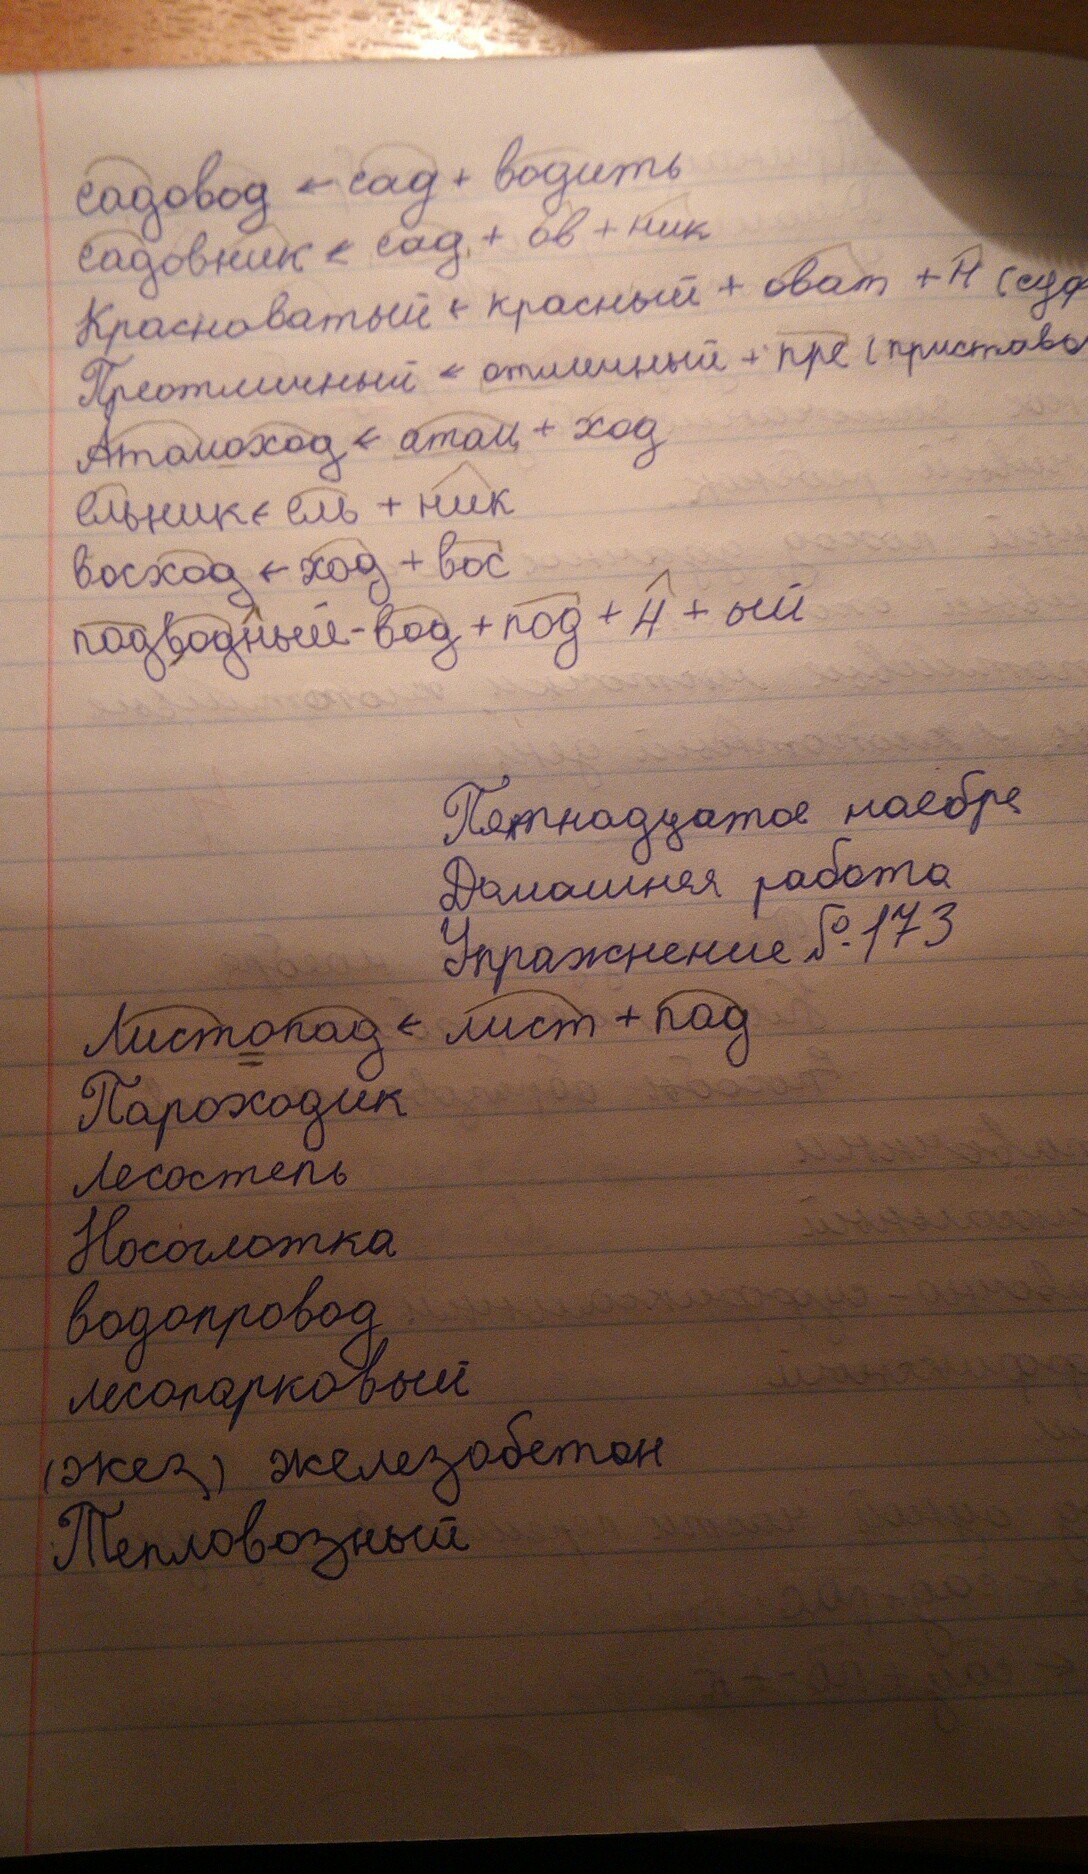 садовод ← сад + водить
садовник ← сад + ов + ник
Красноватый ← красный + оват + н (суф
Преотличный ← отличный + пре (приставо
Атомоход ← атом + ход
Ельник ← ель + ник
восход ← ход + вос
подводный - вод + под + н + ый
Пятнадцатое ноября
Домашняя работа
Упражнение №173
Листопад ← лист + пад
Пароходик
Лесостепь
Носоглотка
водопровод
лесопарковый
(жез) железобетон
Тепловозный